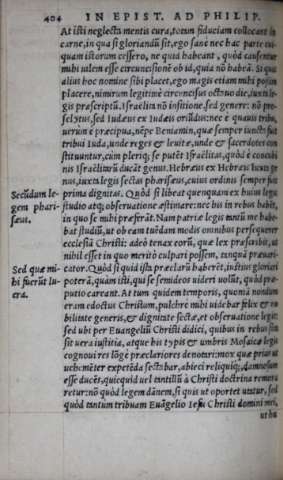 404 IN EPIST. AD PHILIP.
At isti neglecta mentis cura, totum fiduciam collocant in
carne, in qua si gloriandū sit, ego sanè nec hac parte cui-
quam istorum cessero, ne quid habeant, quòd causentur
mihi uilem esse circuncisionē ob id, quia nō habeā. Si quis
alius hoc nomine sibi placet, ego magis etiam mihi possim
placere, nimirum legitimè circuncisus octauo die, iuxta le-
gis præscriptū. Israëlita nō insitione, sed genere: nō pro-
selytus, sed Iudæus ex Iudæis oriūdus: nec è quauis tribu,
uerùm è præcipua, nēpe Beniamin, quæ semper iuncta fuit
tribui Iuda, unde reges & leuitæ, unde & sacerdotes con
stituuntur, cùm pleriq; se putēt Israëlitas, quòd è concubi
nis Israëlitarū ducāt genus. Hebræus ex Hebræis iuxta ge
nus, iuxta legis sectas pharisæus, cuius ordinis semper fuit
Secūdum le- prima dignitas. Quòd si libeat quenquam ex huius legis
gem phari- studio atq; obseruatione æstimare: nec his in rebus habēt,
sæus. in quo se mihi præferāt. Nam patriæ legis mirū me habe-
bat studiū, ut ob eam tuēdam modis omnibus persequerer
ecclesiā Christi: adeò tenax eorū, quæ lex præscribit, ut
nihil esset in quo meritò culpari possem, tanquā præuari-
Sed quæ mi- cator. Quòd si quid ista præclarū haberēt, iustius gloriari
hi fuerūt lu- poterā, quàm isti, qui se semideos uideri uolūt, quòd præ-
cra. putio careant. At tum quidem temporis, quoniā nondum
eram edoctus Christum, pulchrè mihi uidebar felix & no
bilitate generis, & dignitate sectæ, et obseruatione legis:
sed ubi per Euangeliū Christi didici, quibus in rebus sita
sit uera iustitia, atque his typis & umbris Mosaicæ legis
cognoui res lōgè præclariores denotari: mox quæ prius ut
uehemēter expetēda sectabar, abieci reliquiq;, damnosum
esse ducēs, quicquid uel tantillū à Christi doctrina remora
retur: nō quòd legem dānem, si quis ut oportet utatur, sed
quòd tantum tribuam Euāgelio Iesu Christi domini mei,
ut hu